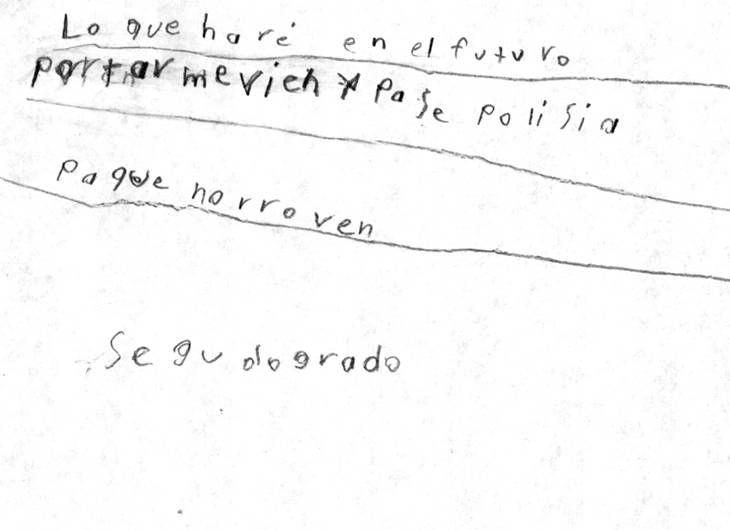 Lo que haré en el futuro
portarmevien y pa se polisia
pa que no rroven
Segudo grado